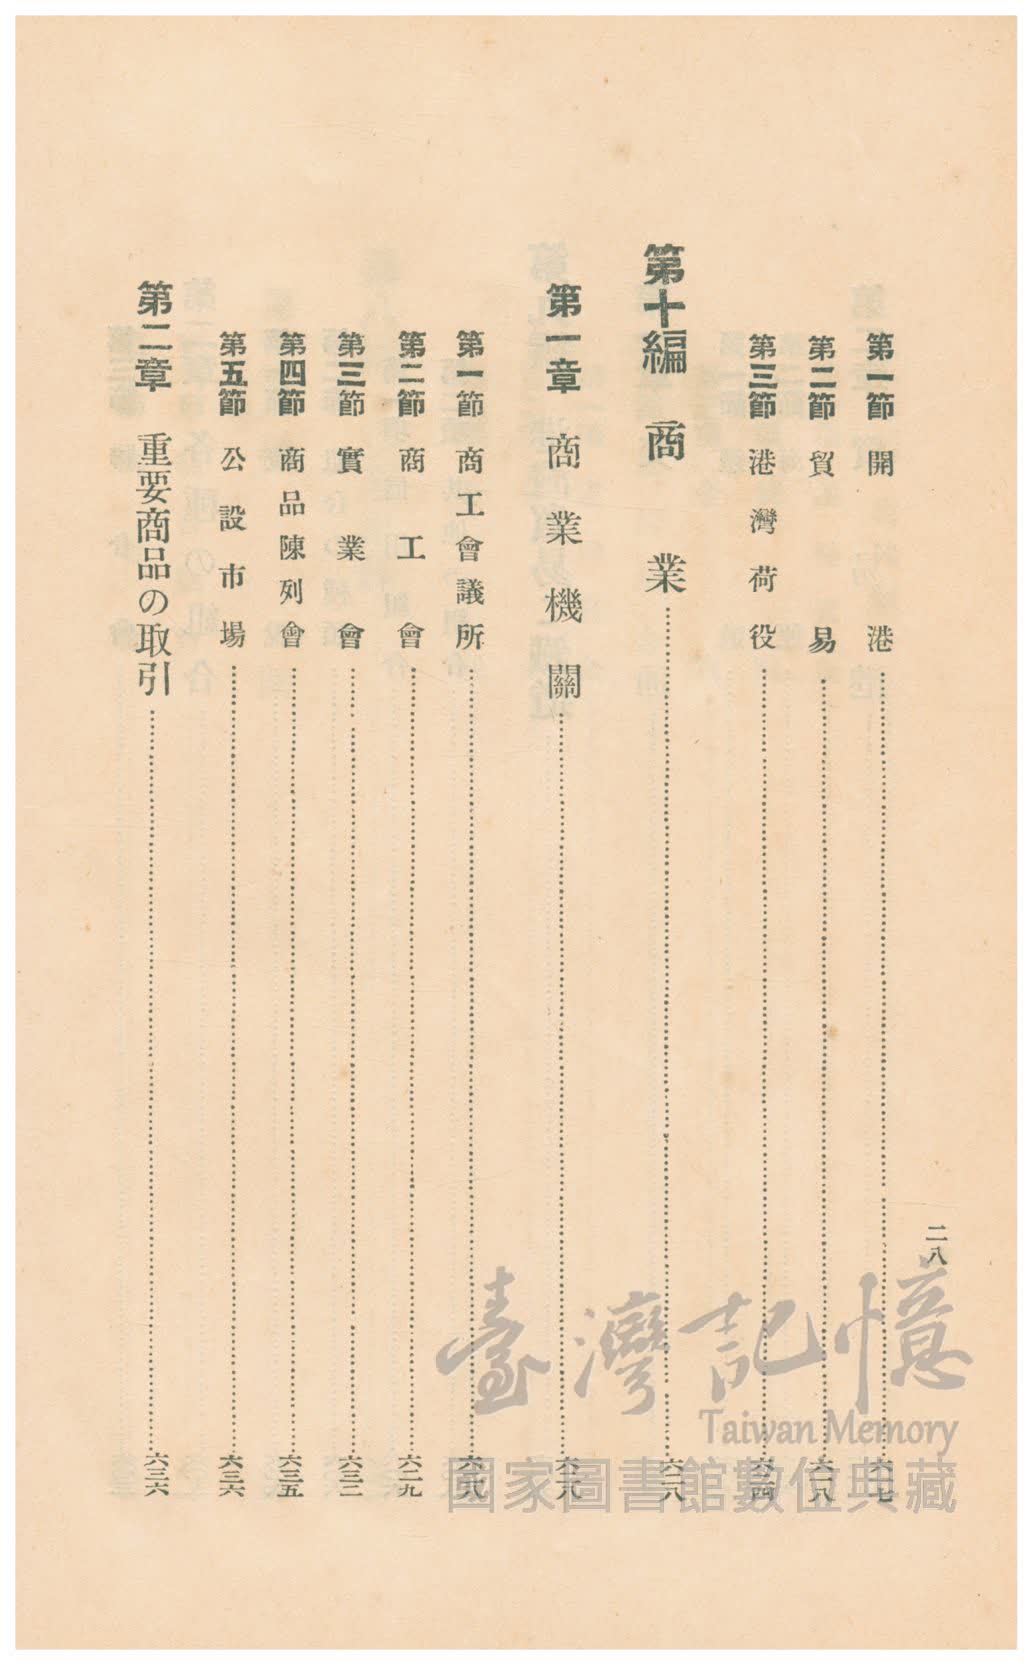 二八
第一節 開港……六一七
第二節 貿易……六一八
第三節 港灣荷役……六二四
第十編 商業……六二八
第一章 商業機關……六二八
第一節 商工會議所……六二八
第二節 商工會……六二九
第三節 實業會……六三三
第四節 商品陳列會……六三五
第五節 公設市場……六三六
第二章 重要商品の取引……六三六
臺灣記憶
Taiwan Memory
國家圖書館數位典藏